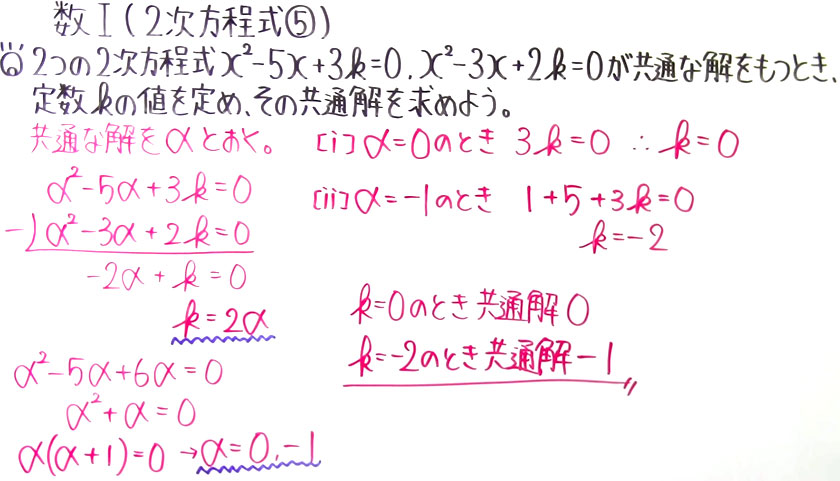 数I(2次方程式⑤)
2つの2次方程式x²-5x+3k=0, x²-3x+2k=0が共通な解をもつとき、
定数kの値を定め、その共通解を求めよう。
共通な解をαとおく。
α²-5α+3k=0
-)α²-3α+2k=0
-2α+k=0
k=2α
α²-5α+6α=0
α²+α=0
α(α+1)=0→α=0,-1
[i]α=0のとき 3k=0 ∴k=0
[ii]α=-1のとき 1+5+3k=0
k=-2
k=0のとき共通解0
k=-2のとき共通解-1